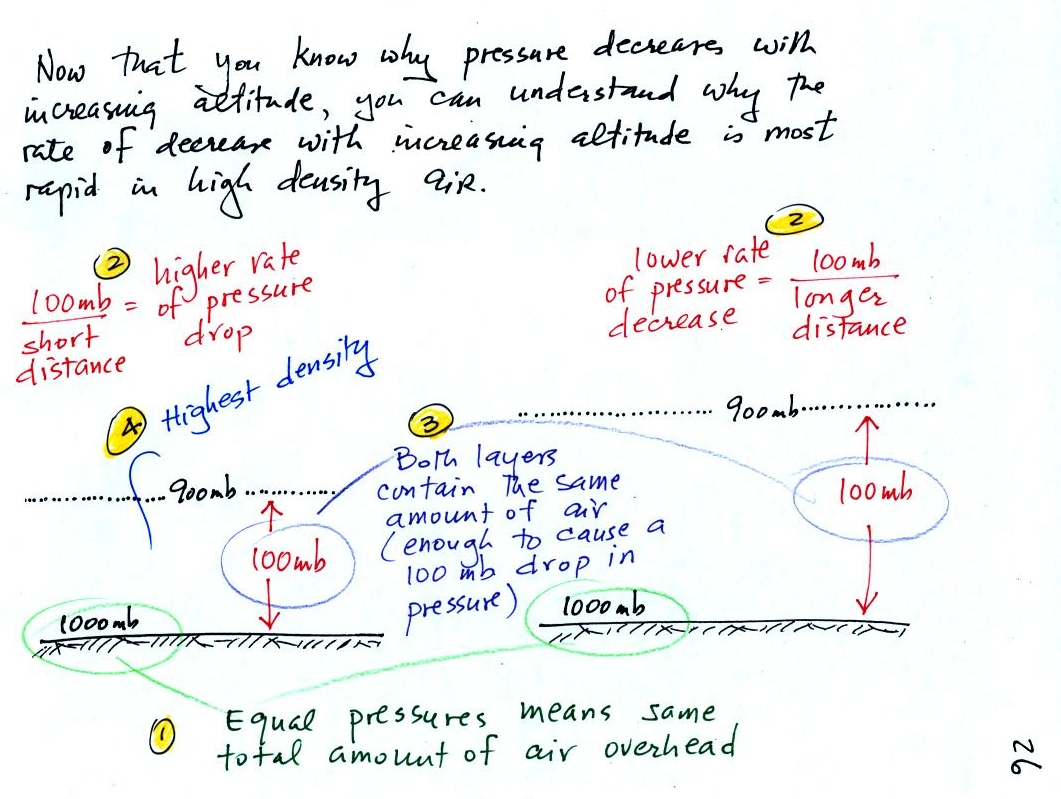 Now that you know why pressure decreases with
increasing altitude, you can understand why the
rate of decrease with increasing altitude is most
rapid in high density air.
2
100mb = higher rate
short of pressure
distance drop
2
lower rate
of pressure = 100mb
decrease longer
distance
4 Highest density
900mb
100mb
1000mb
3
Both layers
contain the same
amount of air
(enough to cause a
100 mb drop in
pressure)
900mb
100mb
1000mb
1 Equal pressures means same
total amount of air overhead
26